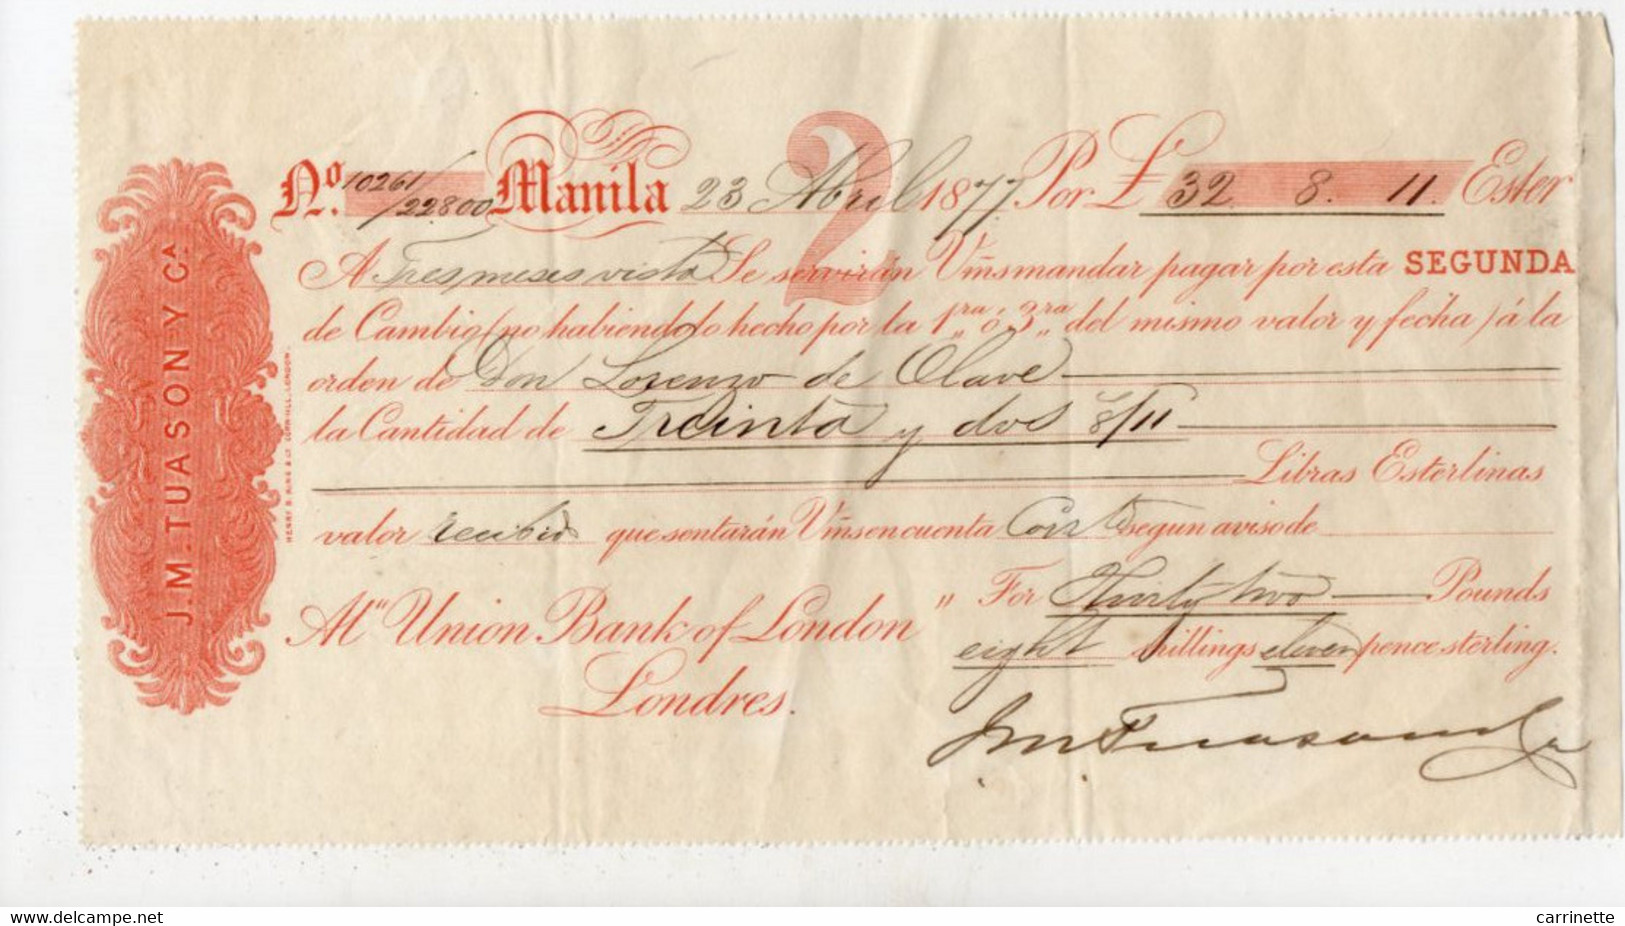 J. M. TUASON Y CA.
HENRY S. KING & Co CORNHILL, LONDON.
2
No. 10261/22.800 Manila 23 Abril 1877. Por £ 32. 8. 11. Ester
A Tres meses vista Se servirán Vms mandar pagar por esta SEGUNDA
de Cambio (no habiendolo hecho por la 1ra ó 3ra del mismo valor y fecha) á la
orden de Don Lorenzo de Olave
la Cantidad de Treinta y dos 8/11
Libras Esterlinas
valor recibido que sentarán Vms en cuenta Corrte segun aviso de
Al "Union Bank of London"
Londres.
For Thirty two Pounds
eight shillings eleven pence sterling.
J M Tuason y Ca
www.delcampe.net
carrinette